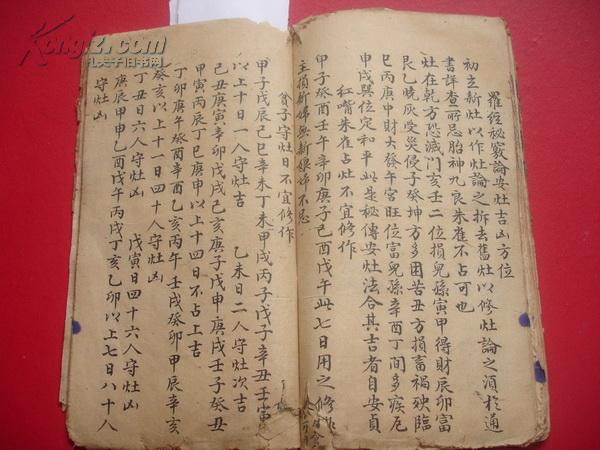 羅經秘竅論安灶吉凶方位
初立新灶以作灶論之拆去舊灶以修灶論之湏於通
書詳查所忌胎神九良朱雀不占可也
灶在乾方恐滅門亥壬二位損兒孫寅甲得財辰卯富
艮乙燒灰受災侵子癸坤方多困苦丑方損畜禍殃臨
巳丙庚申財大發午宮旺位富兒孫辛酉丁間多疾厄
申戌巽位定和平此是秘傳安灶法合其吉者自安貞
紅嘴朱雀占灶不宜修作
甲子癸酉壬午辛卯庚子己酉戊午此七日用之修作
主損新婦無新娘婦不忌
貧子守灶日不宜修作
甲子戊辰己巳辛未丁未甲戌丙子戊子辛丑壬寅
以上十日一人守灶吉 乙未日二人守灶次吉
己丑庚寅辛卯戊戌己亥庚子戊申庚戌壬子癸丑
甲寅丙辰丁巳庚申以上十四日不占上吉
丁卯庚午癸酉辛酉乙亥丙午壬戌癸卯甲辰辛亥
癸亥以上十一日四十人守灶凶
丁丑日六人守灶凶 戊寅日四十六人守灶凶
庚辰甲申乙酉戊午丙戌丁亥乙卯以上七日八十八
守灶凶
Kongfz.com
孔夫子旧书网